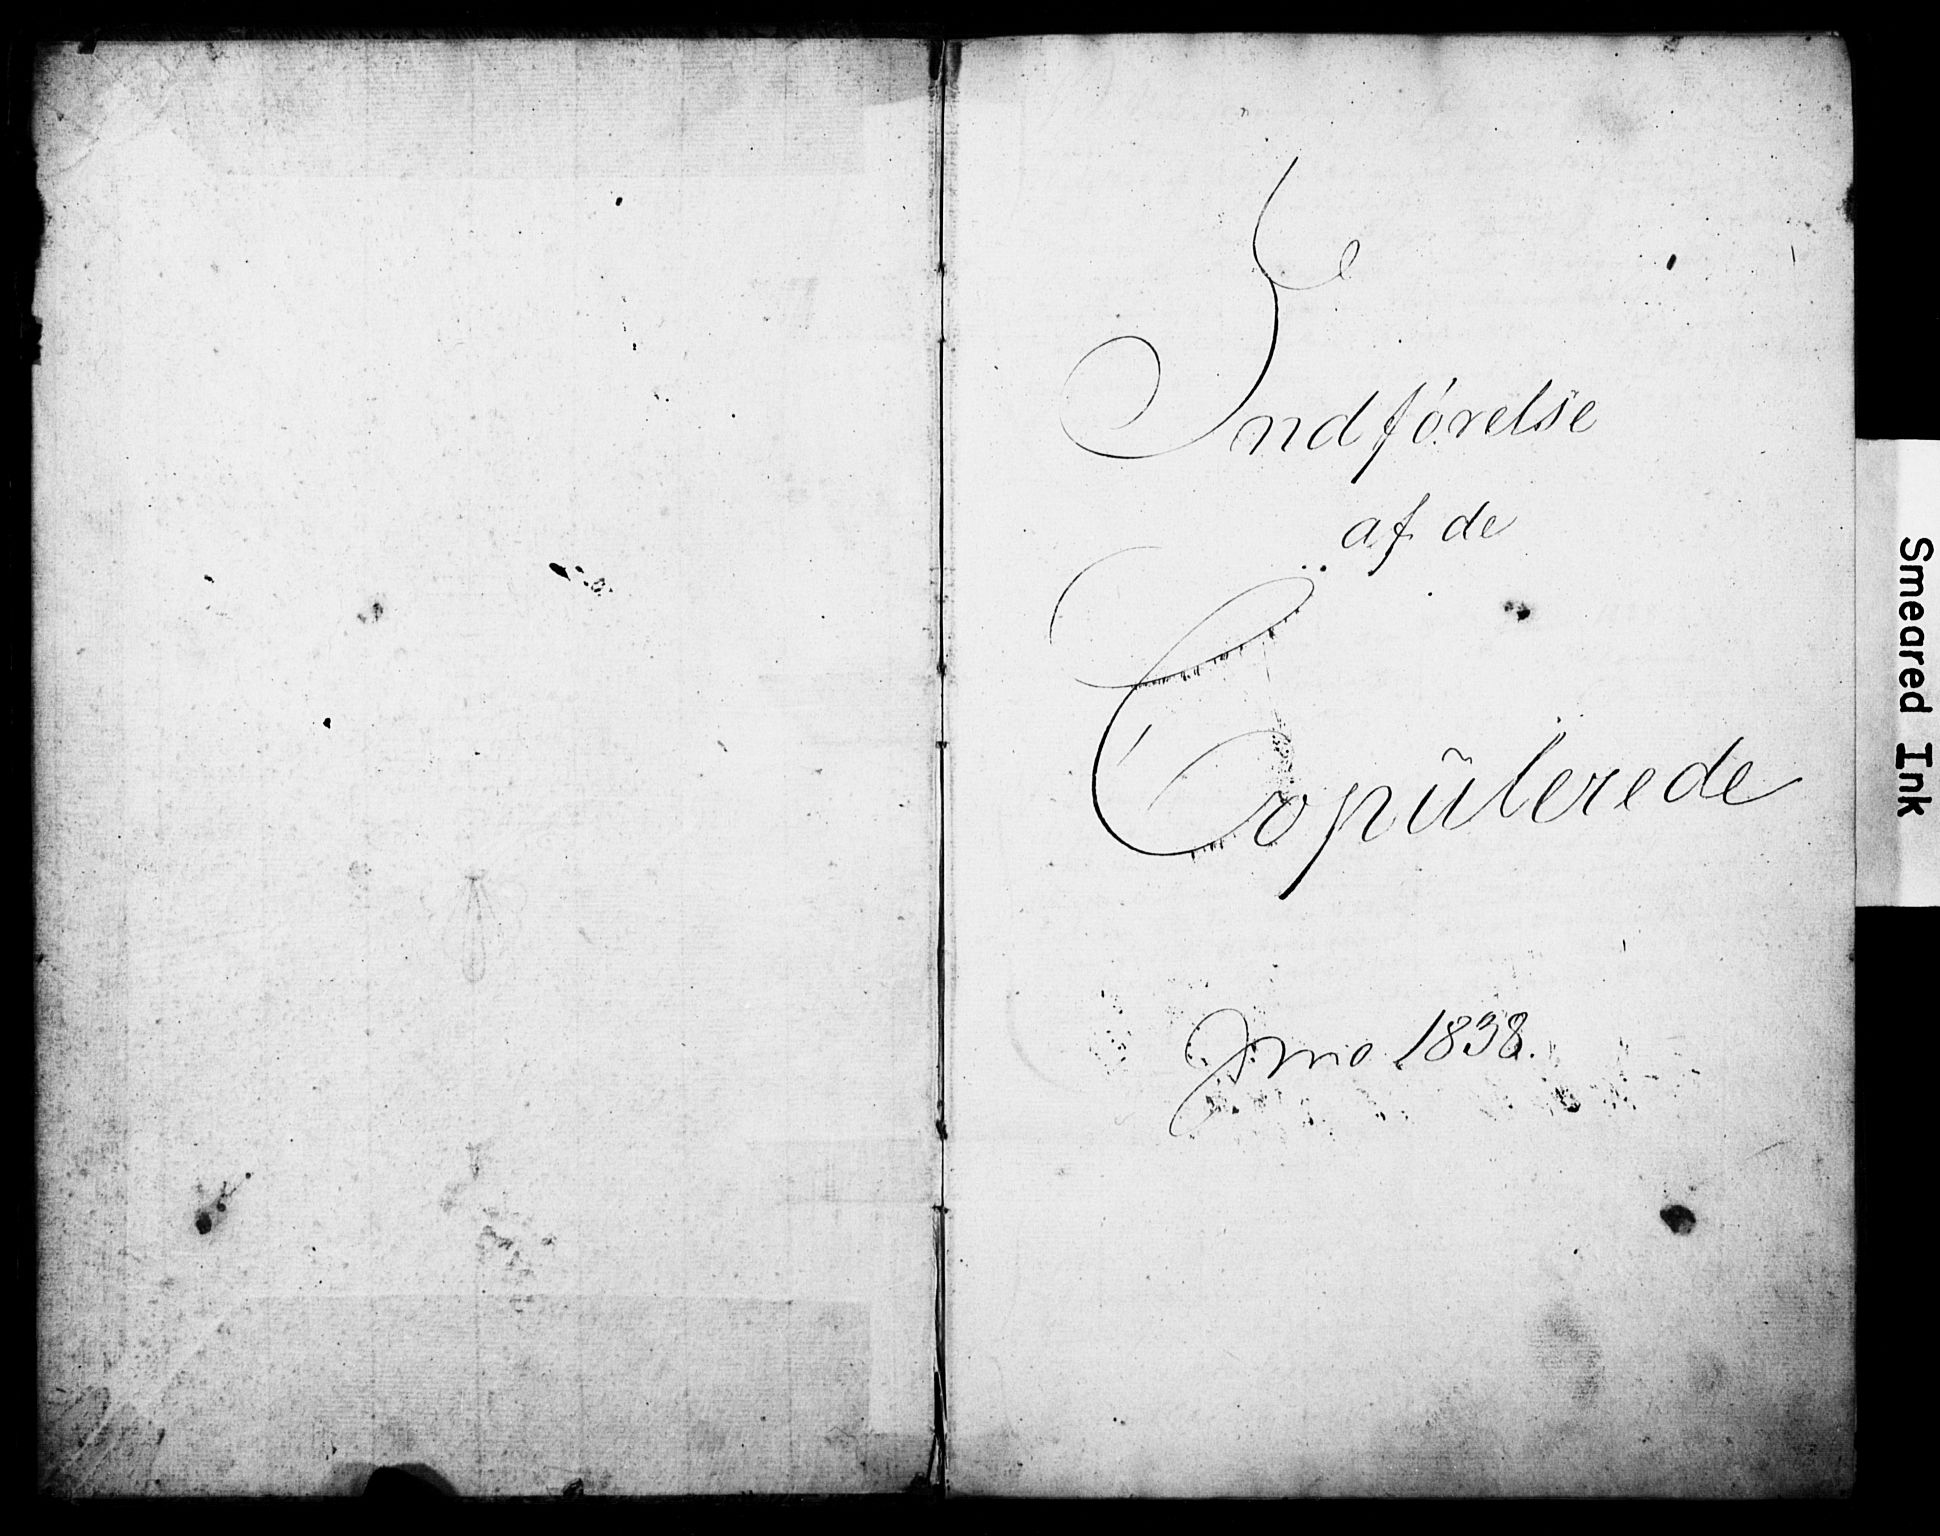 Indførelse
af de
Copũlerede
Anno 1838.
Smeared Ink